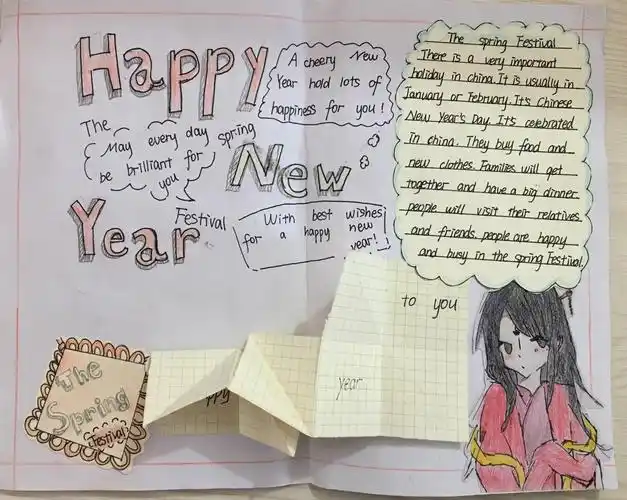 Happy
A cheery New
Year hold lots of
happiness for you!
The spring
May every day
be brilliant for
you
New
Year
Festival
With best wishes
for a happy new
year!
The spring Festival
There is a very important
holiday in china. It is usually in
January or February. It's Chinese
New Year's Day. It's celebrated
in china. They buy food and
new clothes. Families will get
together and have a big dinner.
people will visit their relatives
and friends. people are happy
and busy in the spring Festival.
to you
year
ppy
The
Spring
Festival